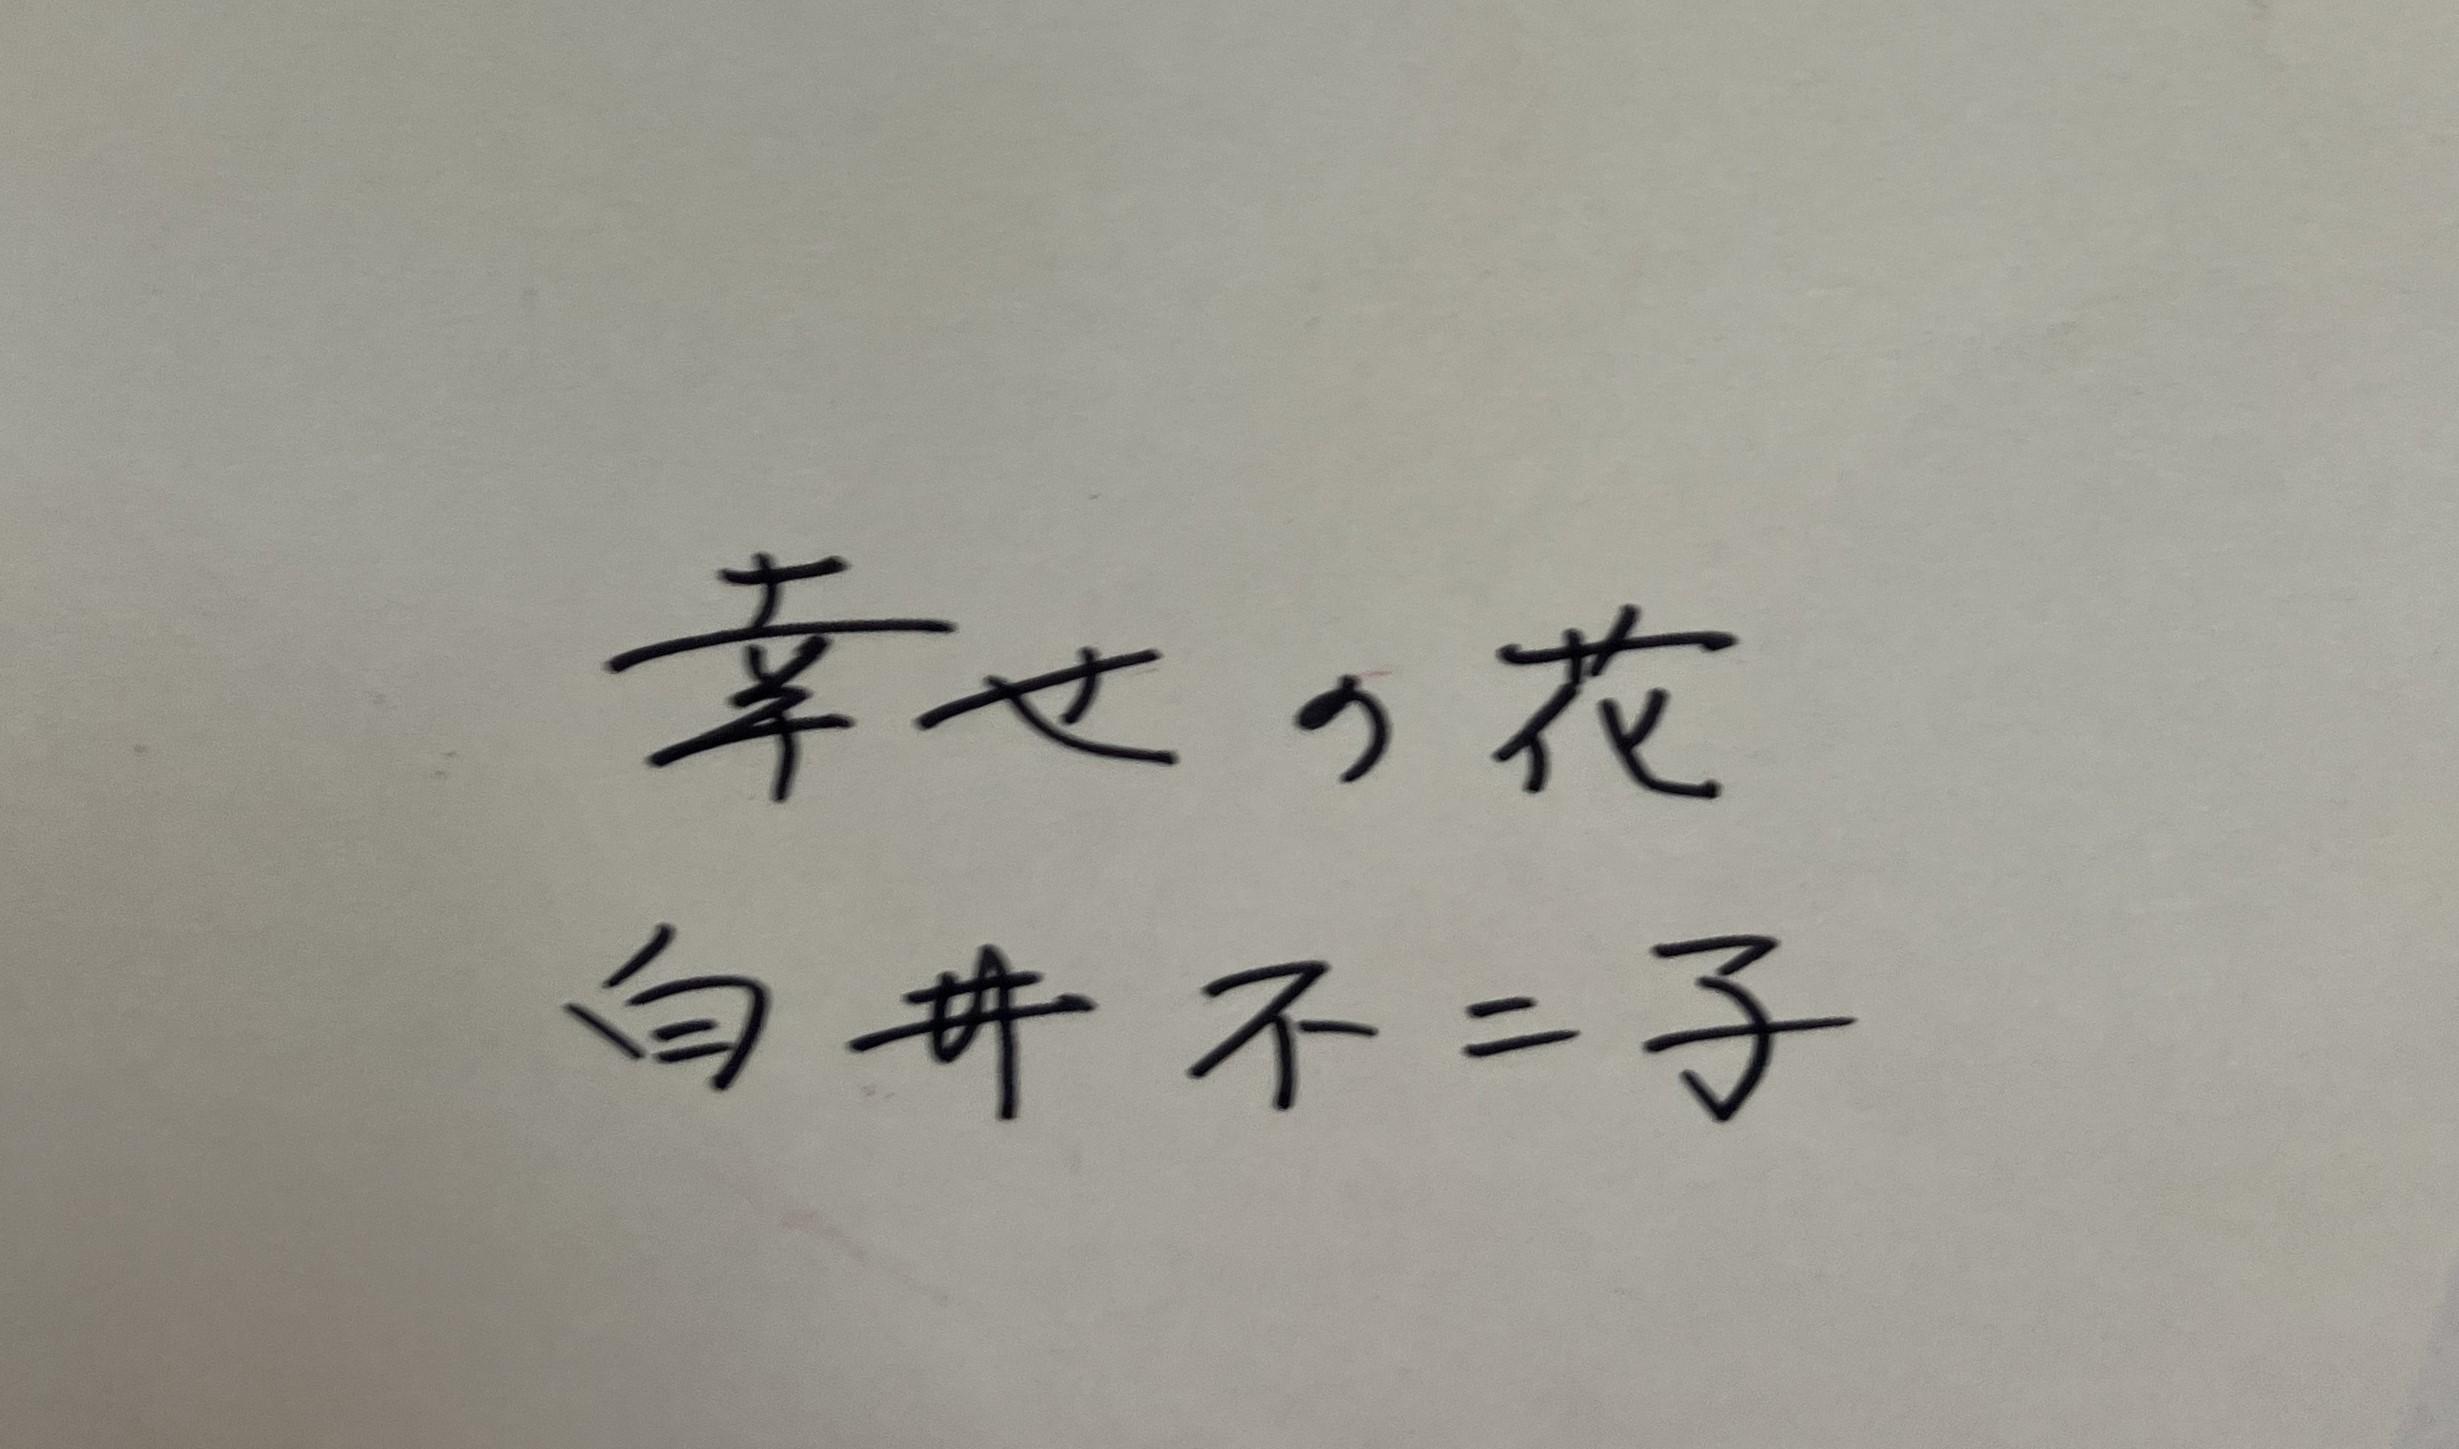 幸せの花
白井不二子